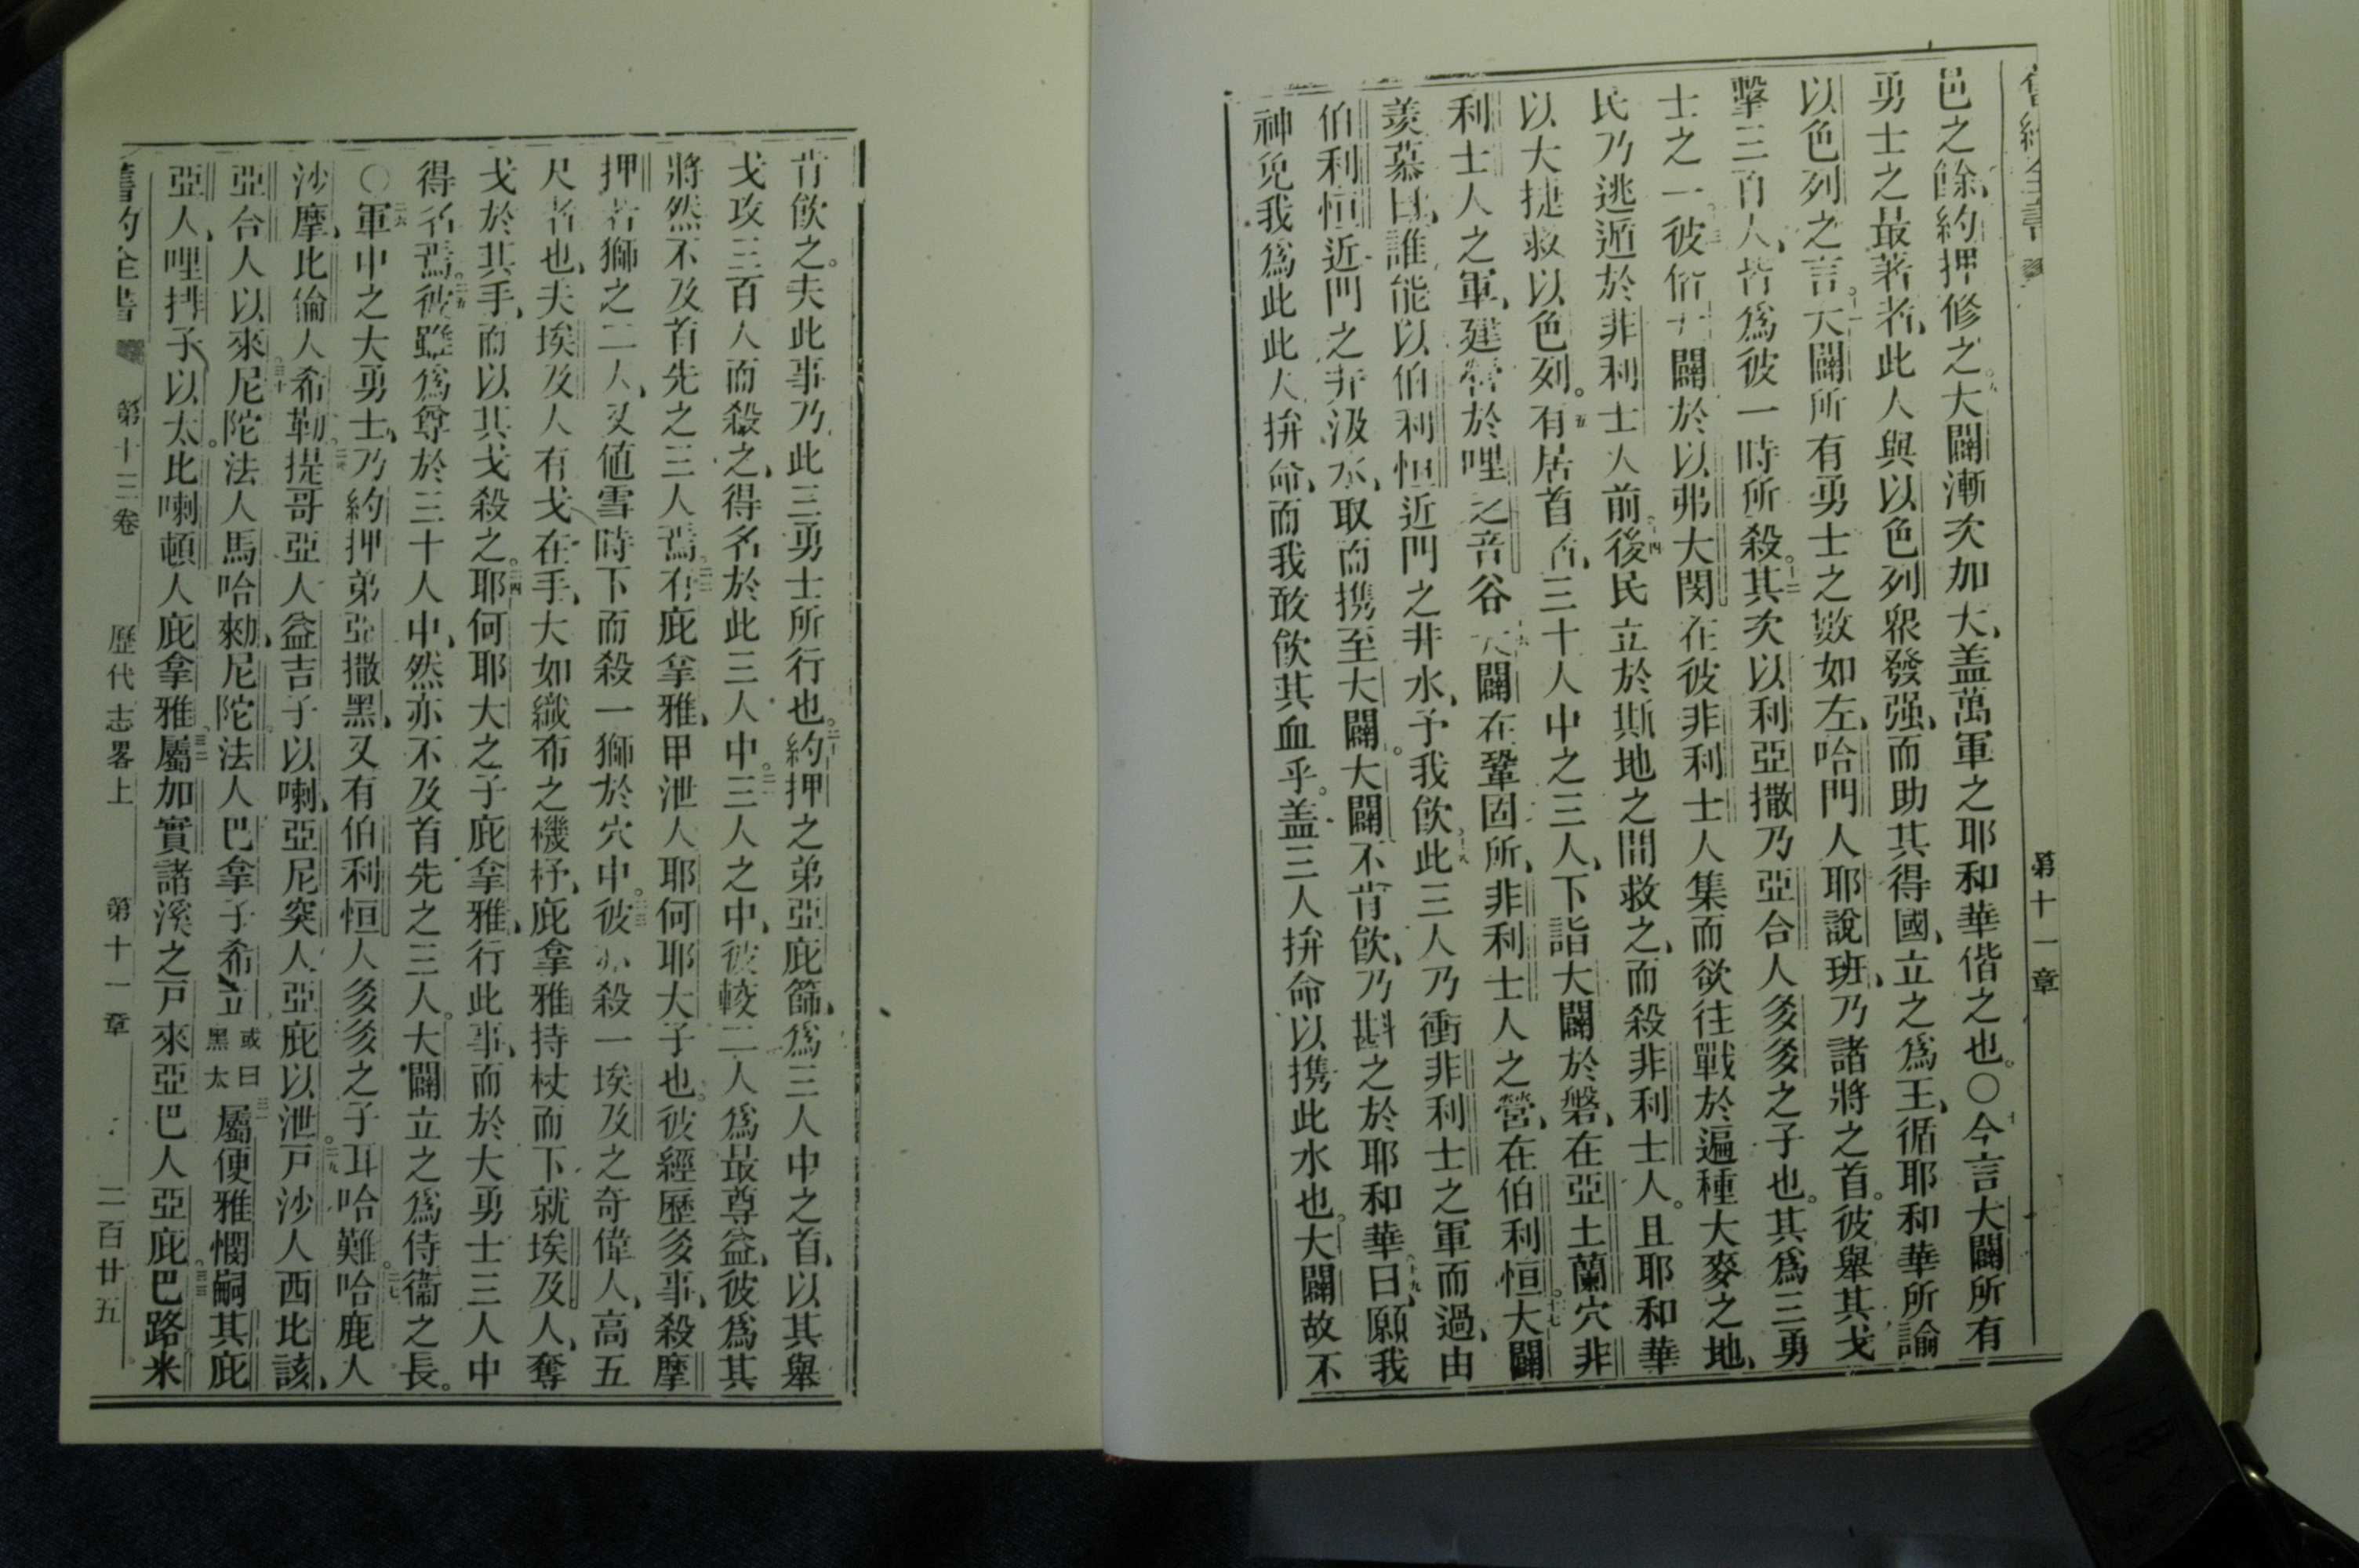 第十一章
邑之餘、約押修之。大闢漸次加大、盖萬軍之耶和華偕之也。○今言大闢所有
勇士之最著者、此人與以色列眾發强、而助其得國、立之爲王、循耶和華所諭
以色列之言。大闢所有勇士之數如左、哈門人耶說班、乃諸將之首。彼舉其戈
擊三百人、皆爲彼一時所殺。其次以利亞撒乃亞合人多多之子也。其爲三勇
士之一。彼偕大闢於以弗大閔在彼非利士人集而欲往戰於遍種大麥之地、
民乃逃遁於非利士人前。後民立於斯地之間救之、而殺非利士人。且耶和華
以大捷救以色列。有居首者、三十人中之三人、下詣大闢於磐、在亞土蘭穴非
利士人之軍、建營於哩乏音谷 大闢在鞏固所、非利士人之營、在伯利恒。大闢
羨慕曰、誰能以伯利恒近門之井水、予我飲。此三人乃衝非利士之軍而過、由
伯利恒近門之井汲水、取而携至大闢。大闢不肯飲、乃斟之於耶和華。曰、願我
神免我爲此此人拚命、而我敢飲其血乎。盖三人拚命以携此水也。大闢故不
肯飲之。夫此事乃此三勇士所行也。約押之弟亞庇篩、爲三人中之首、以其舉
戈攻三百人而殺之、得名於此三人中。三人之中、彼較二人爲最尊益、彼爲其
將然不及首先之三人焉。有庇拿雅、甲泄人耶何耶大子也。彼經歷多事、殺摩
押若獅之二人、又値雪時下而殺一獅於穴中。彼亦殺一埃及之奇偉人、高五
尺者也、夫埃及人有戈在手、大如織布之機杼、庇拿雅持杖而下就埃及人、奪
戈於其手、而以其戈殺之。耶何耶大之子庇拿雅、行此事、而於大勇士三人中
得名焉。彼雖爲尊於三十人中、然亦不及首先之三人。大闢立之爲侍衞之長。
○軍中之大勇士、乃約押弟亞撒黑、又有伯利恒人多多之子耳哈難。哈鹿人
沙摩、比倫人希勒。提哥亞人益吉子以喇、亞尼突人亞庇以泄。戸沙人西比該、
亞合人以來。尼陀法人馬哈勑、尼陀法人巴拿子希立 或曰黑太 屬便雅憫嗣其庇
亞人、哩抖子以太。比喇頓人庇拿雅。屬加實諸溪之戸來亞巴人亞庇。巴路米
舊約全書 第十三卷 歷代志畧上 第十一章 二百廿五